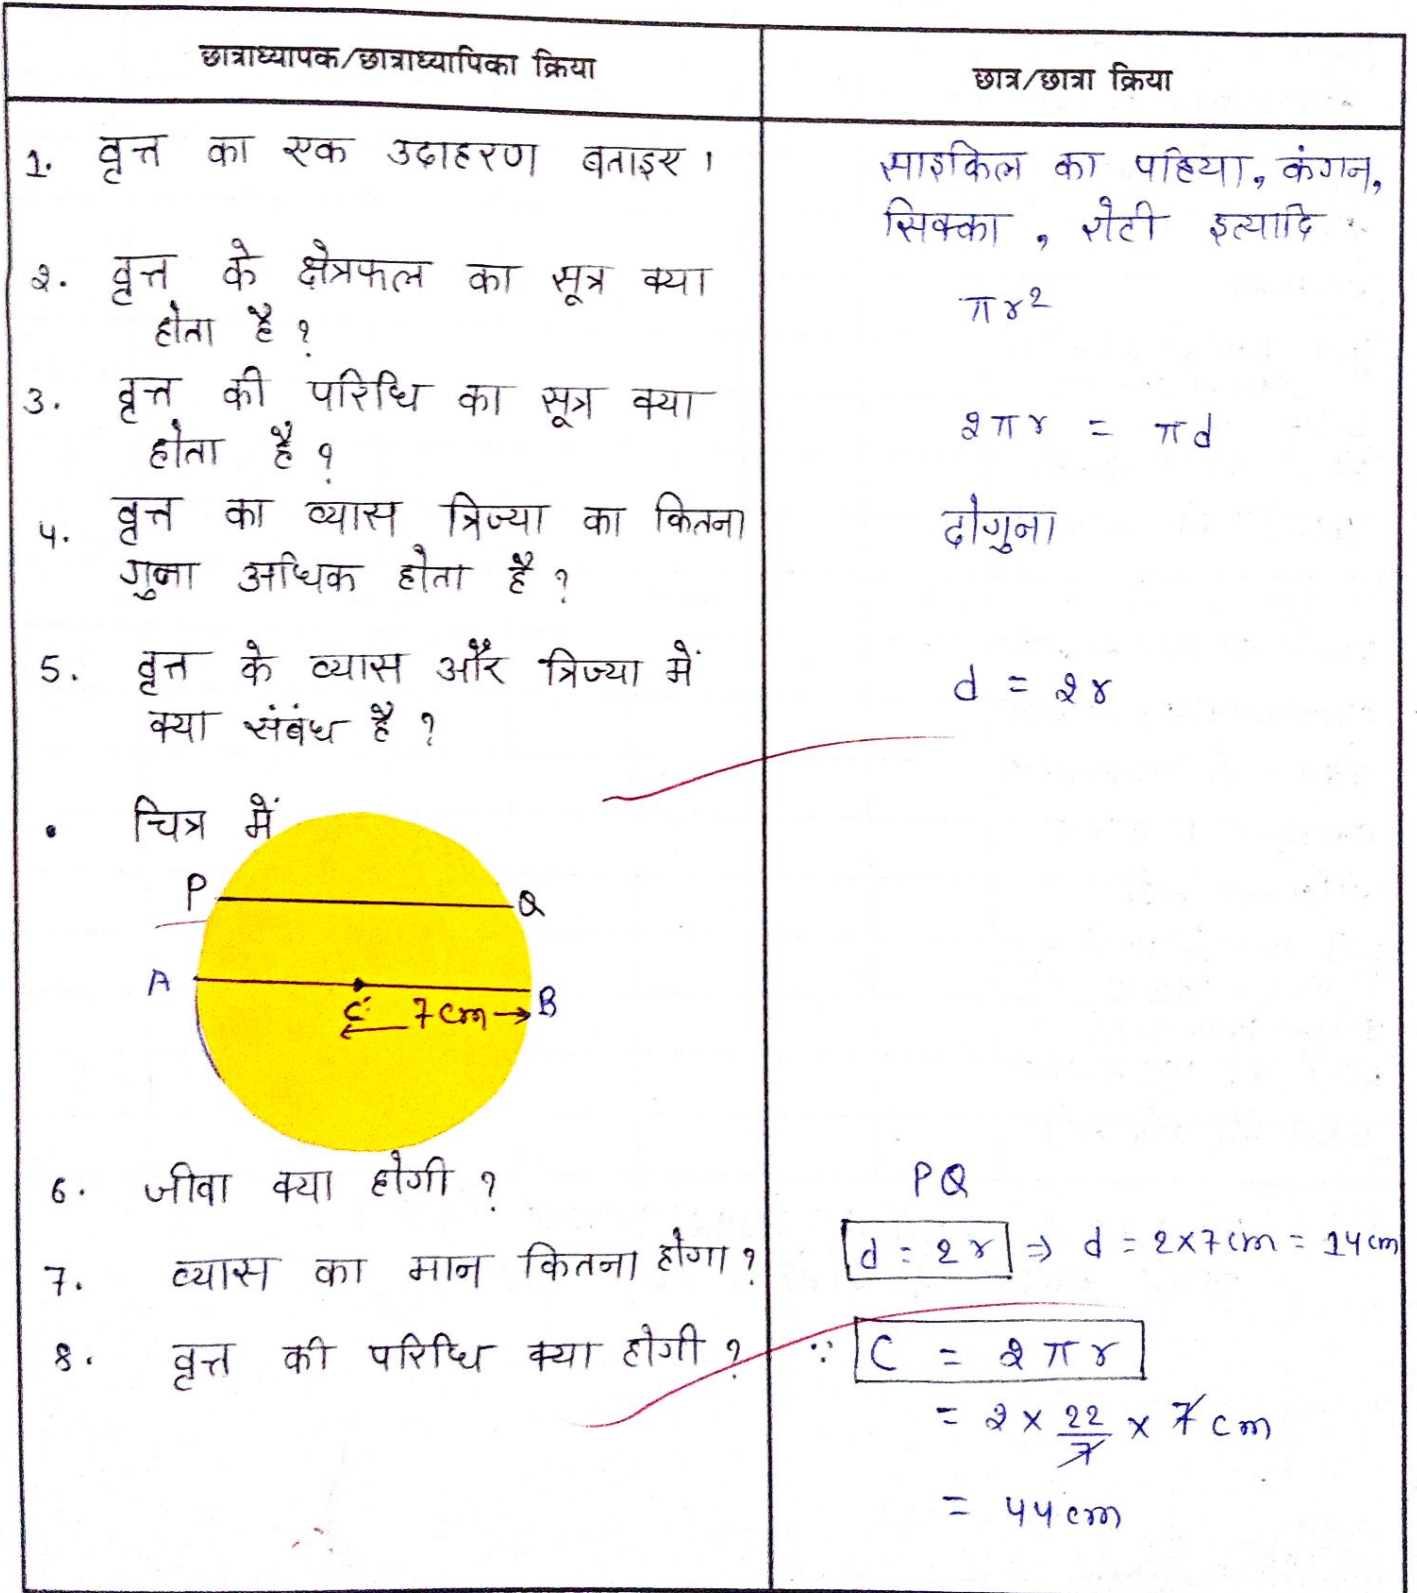 छात्राध्यापक/छात्राध्यापिका क्रिया
छात्र/छात्रा क्रिया
1. वृत्त का एक उदाहरण बताइए।
साइकिल का पहिया, कंगन,
सिक्का, रोटी इत्यादि
2. वृत्त के क्षेत्रफल का सूत्र क्या
होता है ?
πr²
3. वृत्त की परिधि का सूत्र क्या
होता है ?
2πr = πd
4. वृत्त का व्यास त्रिज्या का कितना
गुना अधिक होता है ?
दोगुना
5. वृत्त के व्यास और त्रिज्या में
क्या संबंध है ?
d = 2r
• चित्र में
P Q
A B
C 7cm
6. जीवा क्या होगी ?
PQ
7. व्यास का मान कितना होगा ?
d = 2r ⇒ d = 2×7cm = 14cm
8. वृत्त की परिधि क्या होगी ?
∵ C = 2πr
= 2 × 22/7 × 7 cm
= 44 cm